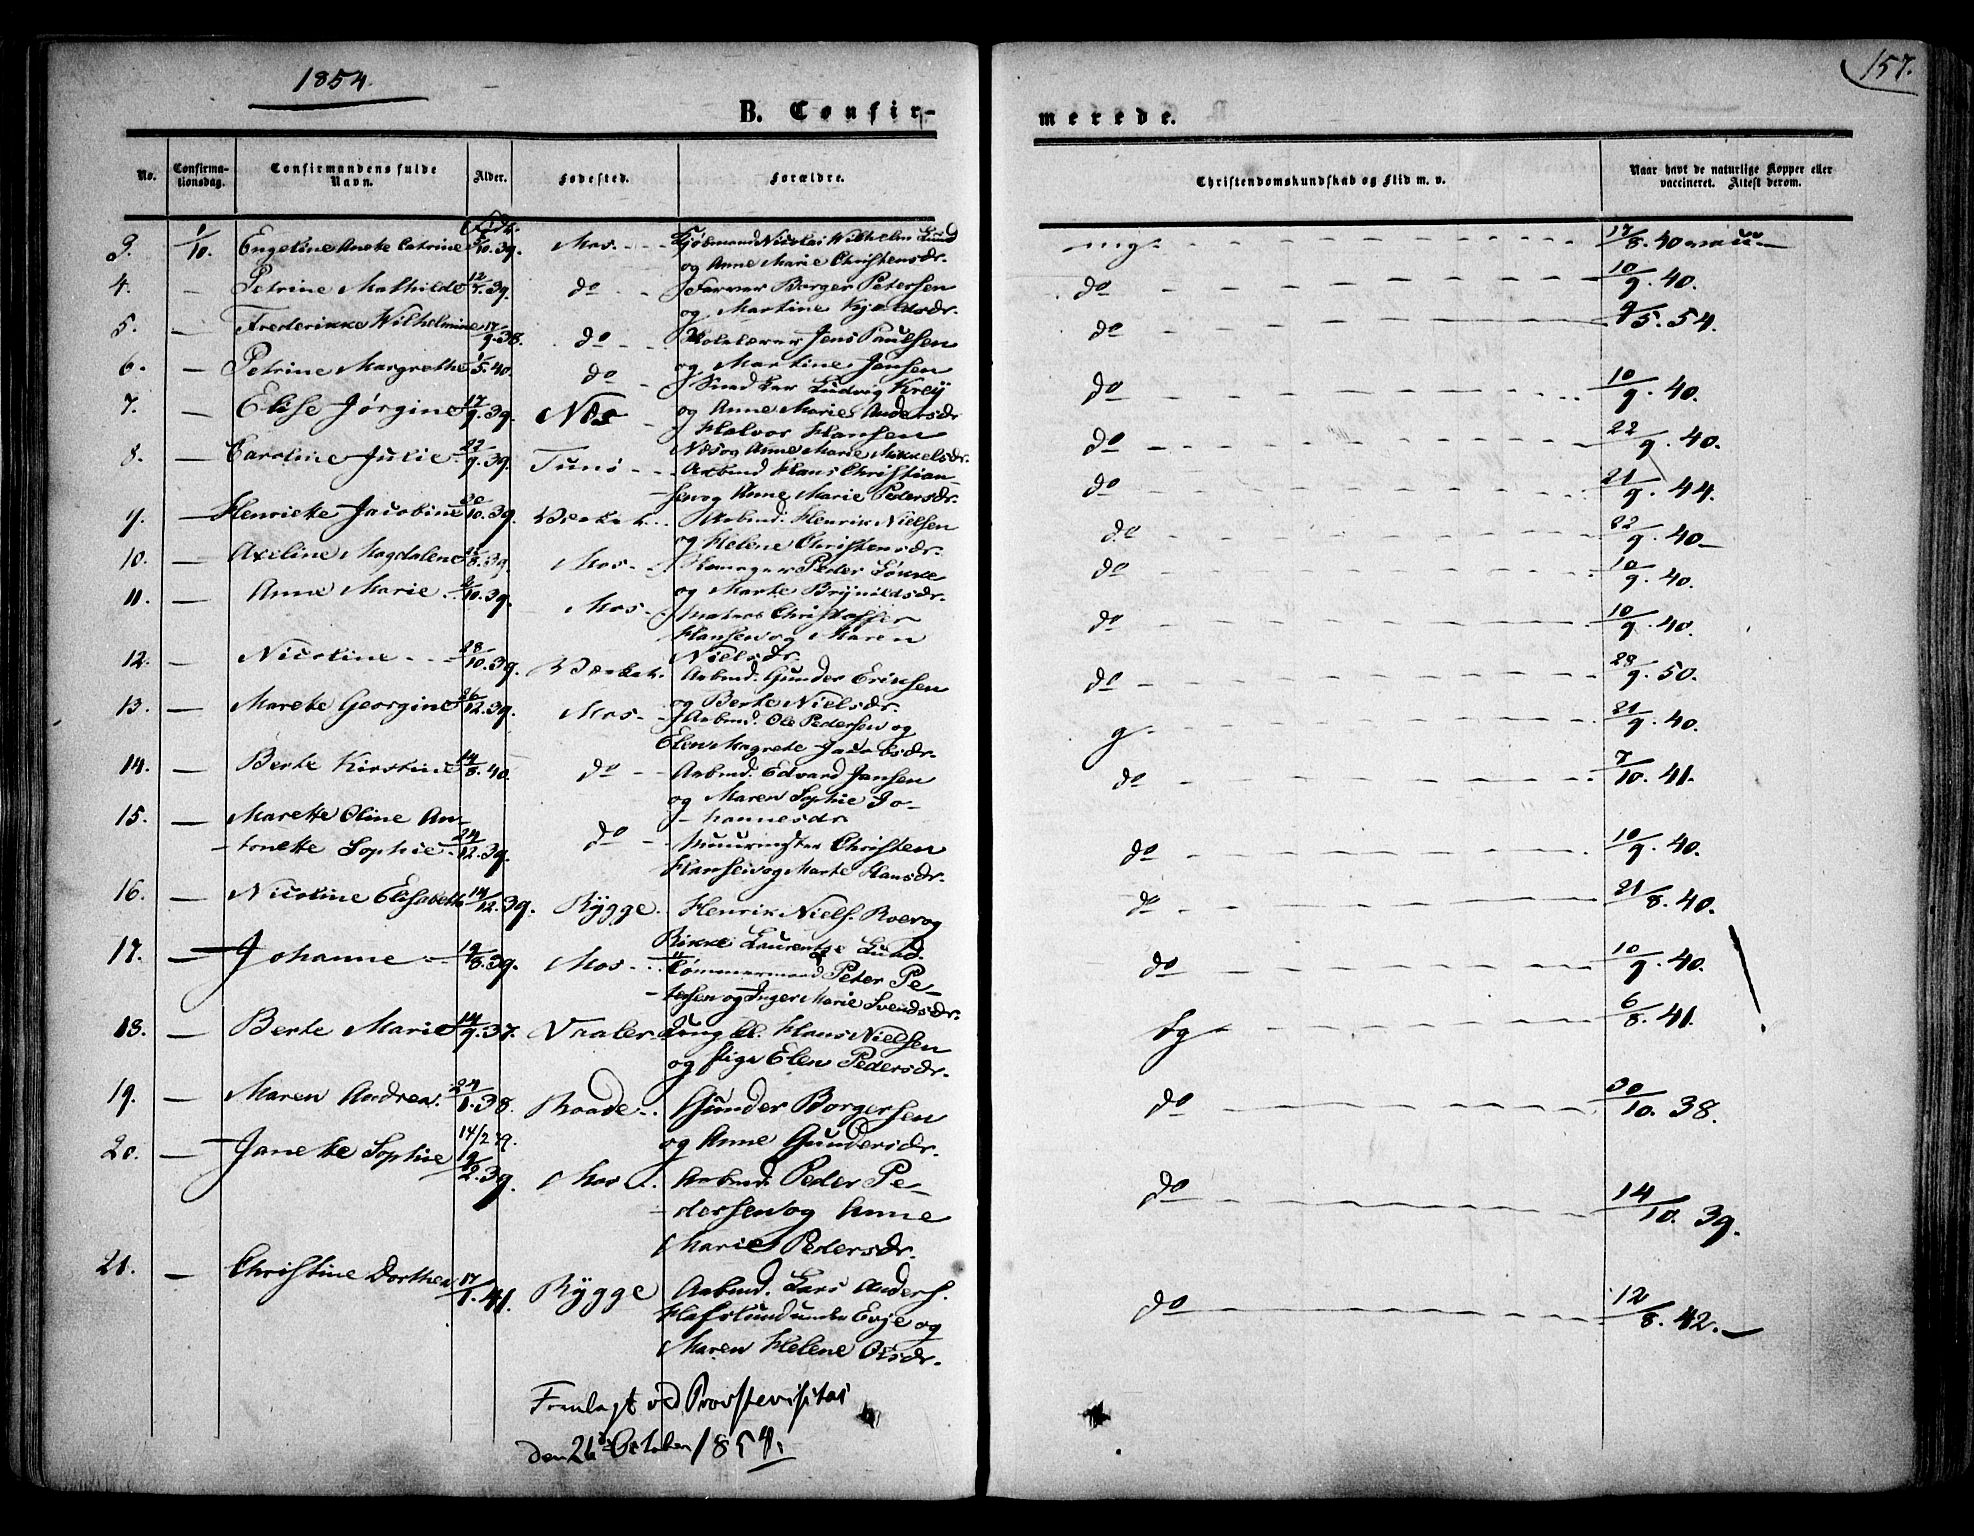 1854.
157.
B. Confir-
merede.
No.
Confirma-
tionsdag.
Confirmandens fulde
Navn.
Alder.
Fødested.
Forældre.
Christendomskundskab og Flid m. v.
Naar havt de naturlige Kopper eller
vaccineret. Attest derom.
3. 1/10 Engeline Anette Catrine 10.39. Mos. Nicolai Wilhelm Lund mg. 17/8.40
og Anne Marie Christensdr.
4. — Petrine Mathilde 12/7.39. do Farver Borger Petersen do 10/9.40.
og Martine Kjældsdr.
5. — Frederikke Wilhelmine 17/9.38. do Jens Paulsen do 9/5.54.
og Martine Jensen
6. — Petrine Margrethe 1/5.40. do Ludvig Kreÿ do 10/9.40.
og Anne Marie Andersdr
7. — Elise Jørgine 17/9.39. Næs Halvor Hansen do 22/9.40.
Næs og Anne Marie Mikkelsdr.
8. — Caroline Julie 22/9.39. Tunø Arbmd Hans Christian- do 21/9.44.
sen og Anne Marie Pedersdr.
9. — Henrikke Jacobine 20/10.39. Arbmd. Henrik Nielsen do 22/9.40—
og Helene Christensdr.
10. — Axeline Magdalene 8.39. Mos. Peder Løkke do 10/9.40.
og Marte Brÿnildsdr.
11. — Anne Marie 10.39. Mos. Christoffer do 10/9.40.
Hansen og Maren
Nielsdr.
12. — Nicoline 28/10.39. Arbmd. Gunder Eriksen do 28/9.50.
og Berte Nielsdr.
13. — Marete Georgine 26/12.39. Mos. Arbmd. Ole Pedersen og g. 21/9.40.
Elen Magrete Jacobsdr.
14. — Berte Kirstine 14/8.40. do Arbmd. Edvard Jansen do 7/10.41.
og Maren Sophie Jo-
hannesdr
15. — Marette Oline An-
tonette Sophie 24/12.39. do Muurmster Christen do 10/9.40.
Hansen og Marte Hansdr.
16. — Nicoline Elisabeth 14/12.39. Rÿgge. Henrik Niels. Roer og do 21/8.40.
Rikke Laurentze Lund.
17. — Johanne 19/8.39. Mos. Tømmermand Peter Pe- do 10/9.40.
tersen og Inger Marie Svendsdr.
18. — Berte Marie 14/9.37. Vaaler. Ung kl. Hans Nielsen tg 6/8.41.
og Pige Elen Pedersdr.
19. — Maren Andrea. 24/1.38. Raade. Gunder Borgersen do 30/10.38.
og Anne Gundersdr.
20. — Janette Sophie 14/2 39. 19/2.39. Mos. Arbmd. Peder Pe- do 14/10.39.
dersen og Anne
Marie Pedersdr.
21. — Christine Dorthea 17/1.41. Rÿgge Arbmd. Lars Anders. do 12/8.42.—
Hafslund under Evje og
Maren Helene Olsdr.
Fremlagt ved Provstevisitas
den 26de October 1854.